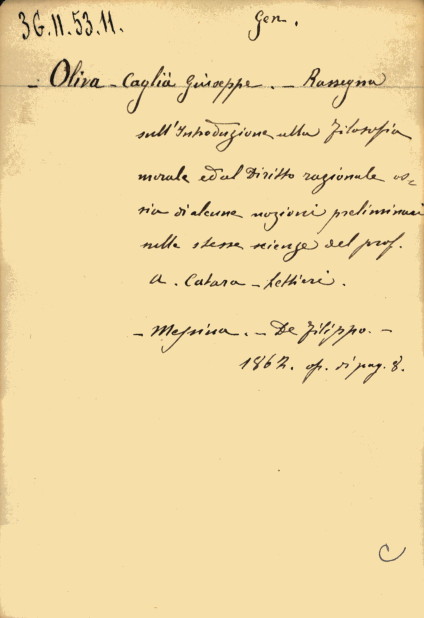 3G.II.53.11.
Gen.
- Oliva - Caglià Giuseppe. - Rassegna
sull'Introduzione alla Filosofia
morale ed al Diritto razionale os=
sia di alcune nozioni preliminari
sulle stesse scienze del prof.
A. Catara - Lettieri.
- Messina. - De Filippo. -
1862. op. di pag. 8.
C